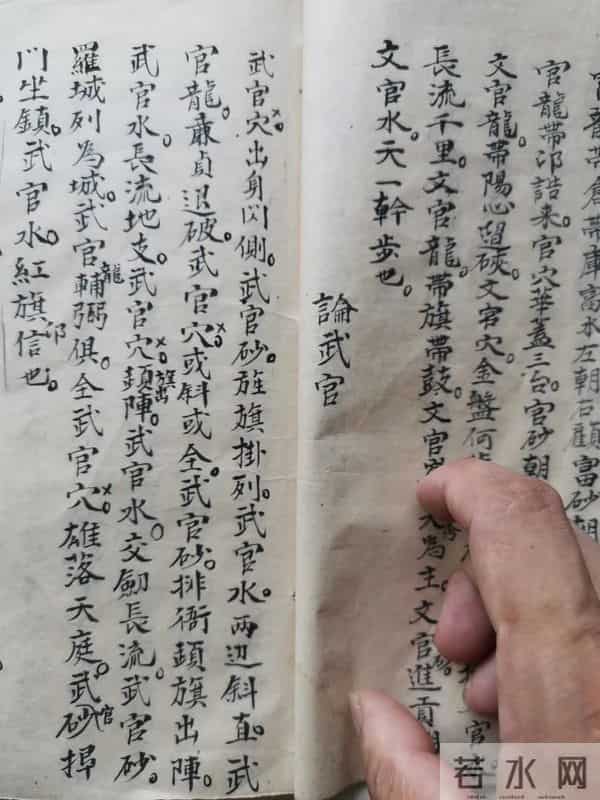 官龍帶倉帶庫富水左朝右顧富砂朝
官龍帶印誥来。官穴華蓋三台。官砂朝
文官龍。帶陽必過硤。文官穴。金盤何
長流千里。文官龍。帶旗帶鼓。文官為主。文官進貢
文官水。天一幹步也。
論武官
武官穴。出身閃側。武官砂。旌旗掛列。武官水。两边斜直。武
官龍。廉貞退破。武官穴。或斜或全。武官砂。排衙頓旗出陣。
武官水。長流地支。武官穴。旗凿頓陣。武官水。交劍長流。武官砂。
羅城列為城。武官龍輔弼俱。全武官穴。雄落天庭。武官砂捍
门坐鎮。武官水。紅旗印信也。
若水网